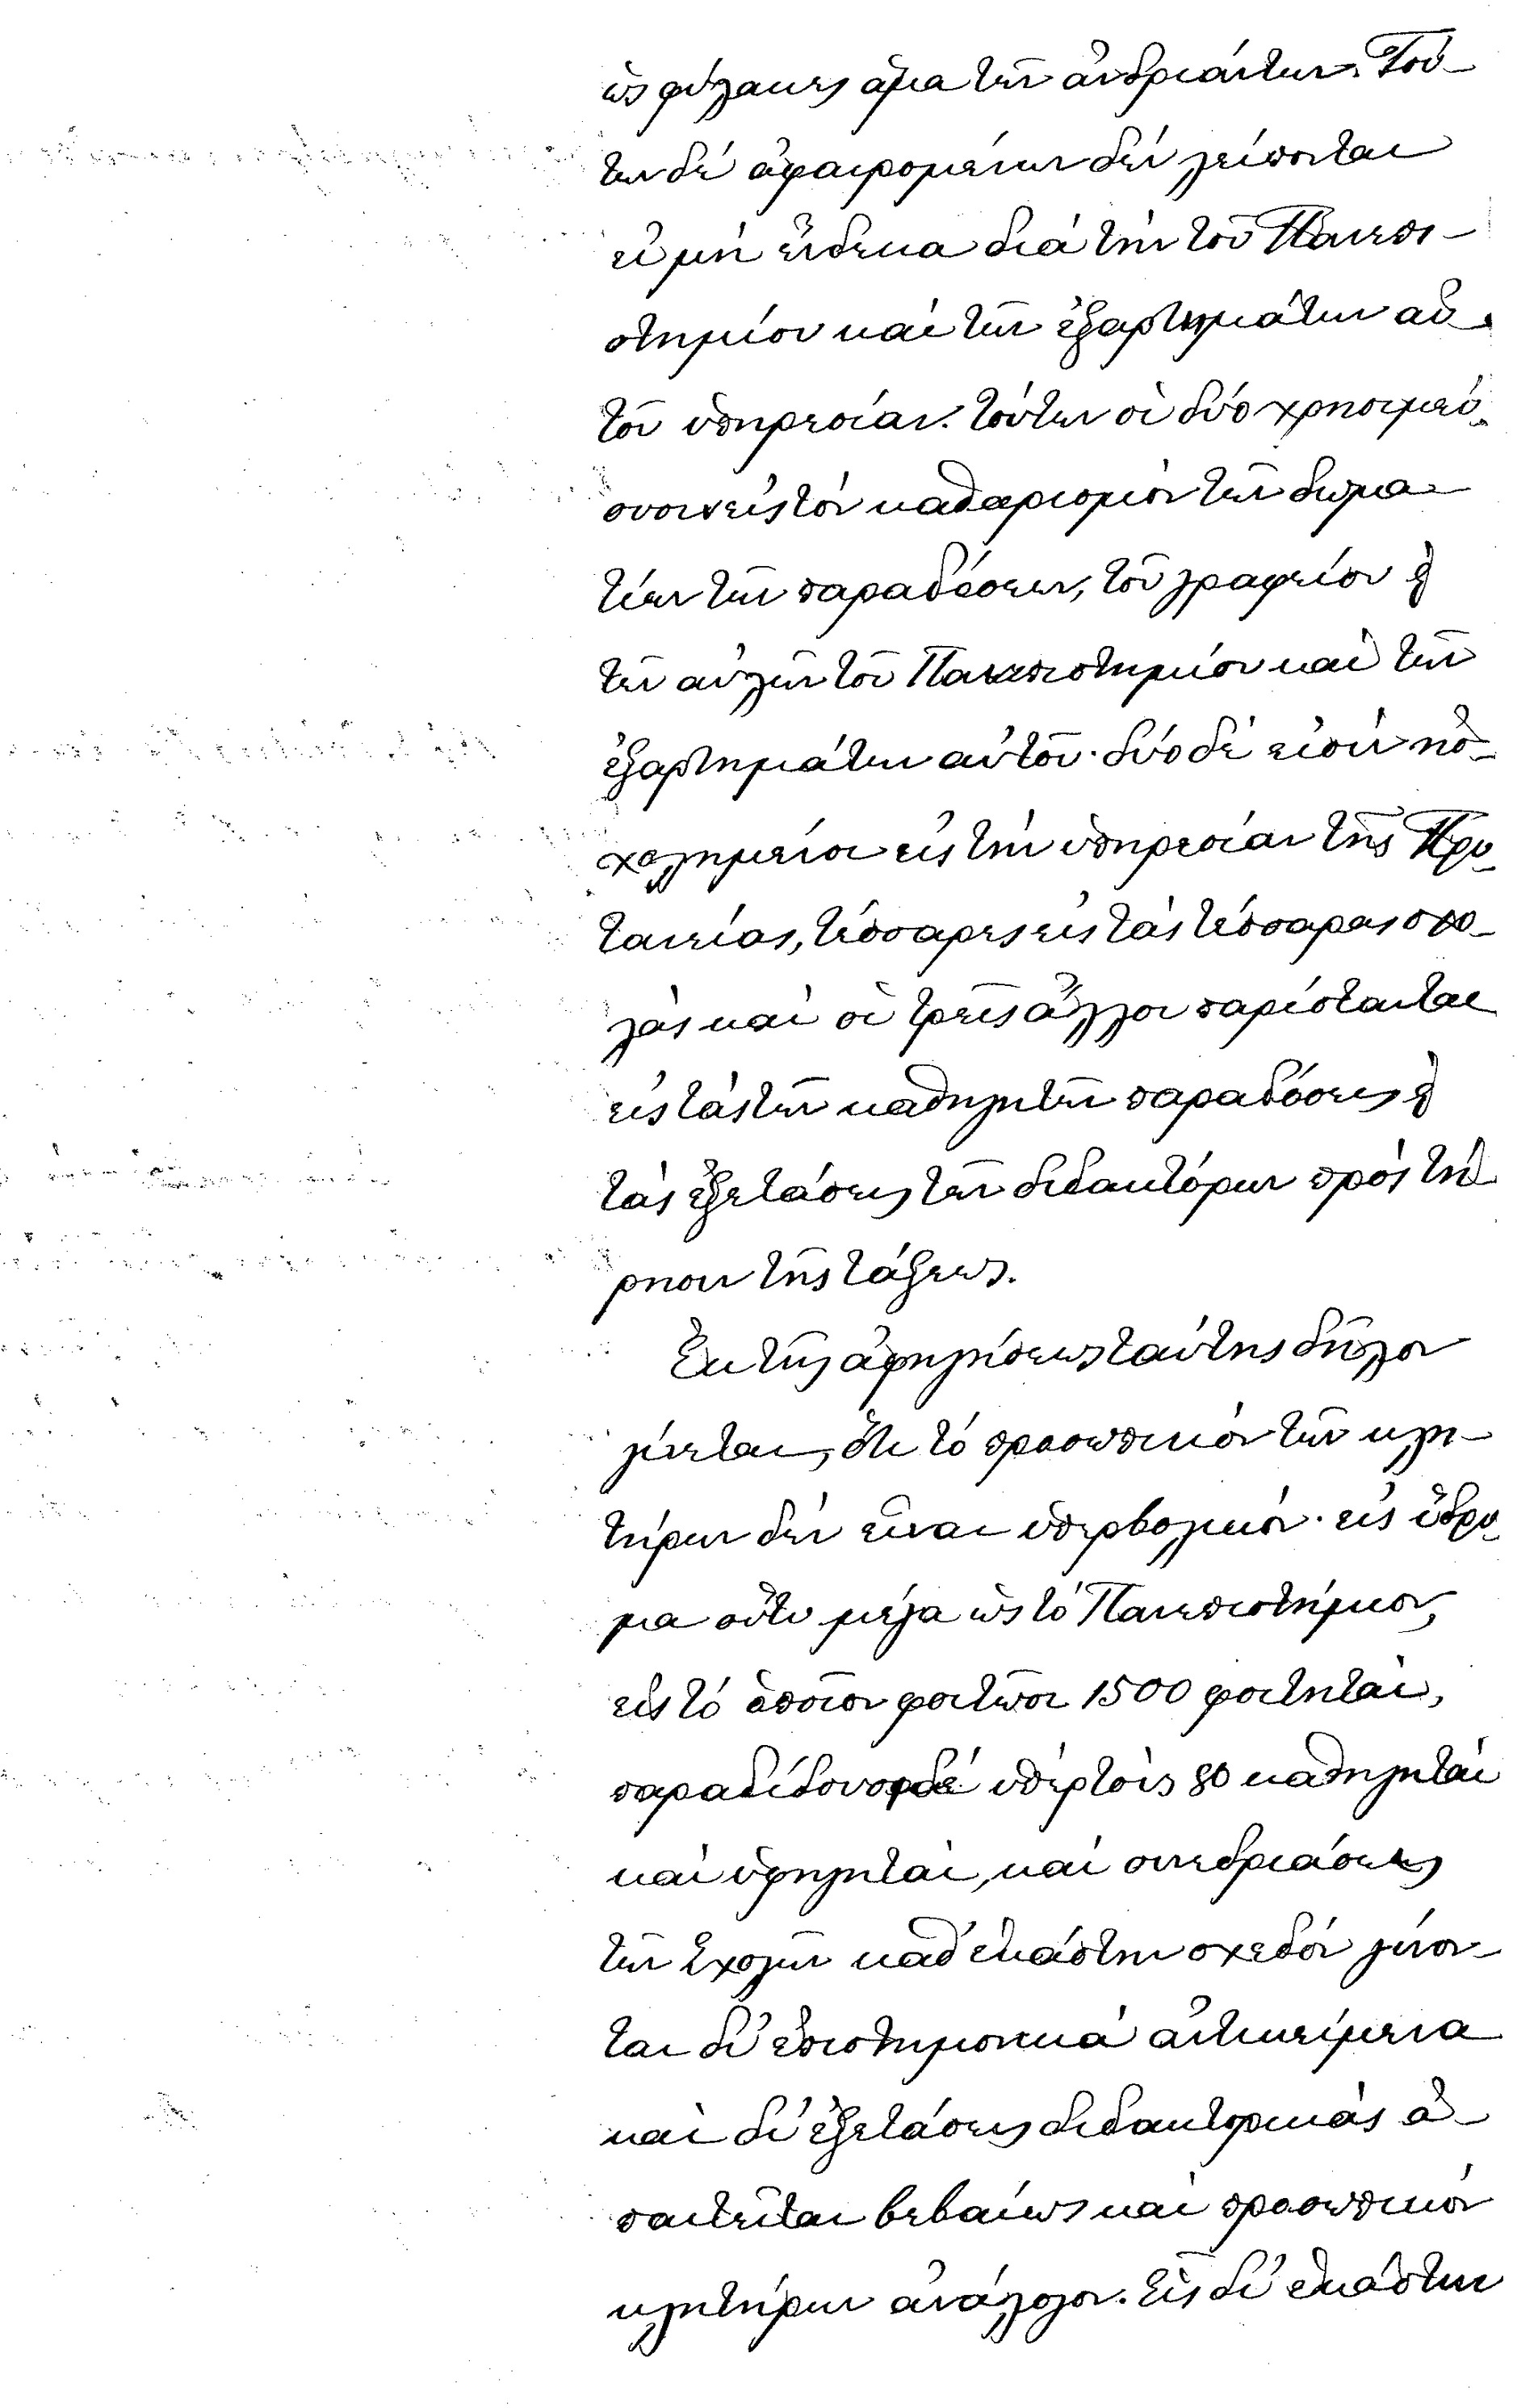 ὡς φύλακες ἅμα τῶν ἀνδριάντων. Τού-
των δέ ἀφαιρομένων δέν λείπονται
εἰ μή ἕνδεκα διά τήν τοῦ Πανεπι-
στημίου καί τῶν ἐξαρτημάτων αὐ-
τοῦ ὑπηρεσίαν. τούτων οἱ δύο χρησιμεύ-
ουσιν εἰς τόν καθαρισμόν τῶν δωμα-
τίων τῶν παραδόσεων, τοῦ γραφείου ϗ
τῶν αὐλῶν τοῦ Πανεπιστημίου καί τῶν
ἐξαρτημάτων αὐτοῦ· δύο δέ εἰσίν ἠσ-
χολημένοι εἰς τήν ὑπηρεσίαν τῆς Πρυ-
τανείας, τέσσαρες εἰς τάς τέσσαρας σχο-
λάς καί οἱ τρεῖς ἄλλοι παρίστανται
εἰς τάς τῶν καθηγητῶν παραδόσεις ϗ
τάς ἐξετάσεις τῶν διδακτόρων πρός τή-
ρησιν τῆς τάξεως.
Ἐκ τῆς ἀφηγήσεως ταύτης δῆλον
γίνεται, ὅτι τό προσωπικόν τῶν κλη-
τήρων δέν εἶναι ὑπερβολικόν· εἰς ἵδρυ-
μα οὕτω μέγα ὡς τό Πανεπιστήμιον,
εἰς τό ὁποῖον φοιτῶσι 1500 φοιτηταί,
παραδίδουσι δέ ὑπέρ τούς 80 καθηγηταί
καί ὑφηγηταί, καί συνεδριάσεις
τῶν Σχολῶν καθ' ἑκάστην σχεδόν γίνον-
ται δι' ἐπιστημονικά ἀντικείμενα
καί δι' ἐξετάσεις διδακτορικάς ἀ-
παιτεῖται βεβαίως καί προσωπικόν
κλητήρων ἀνάλογον. Εἰς δι' ἑκάστην